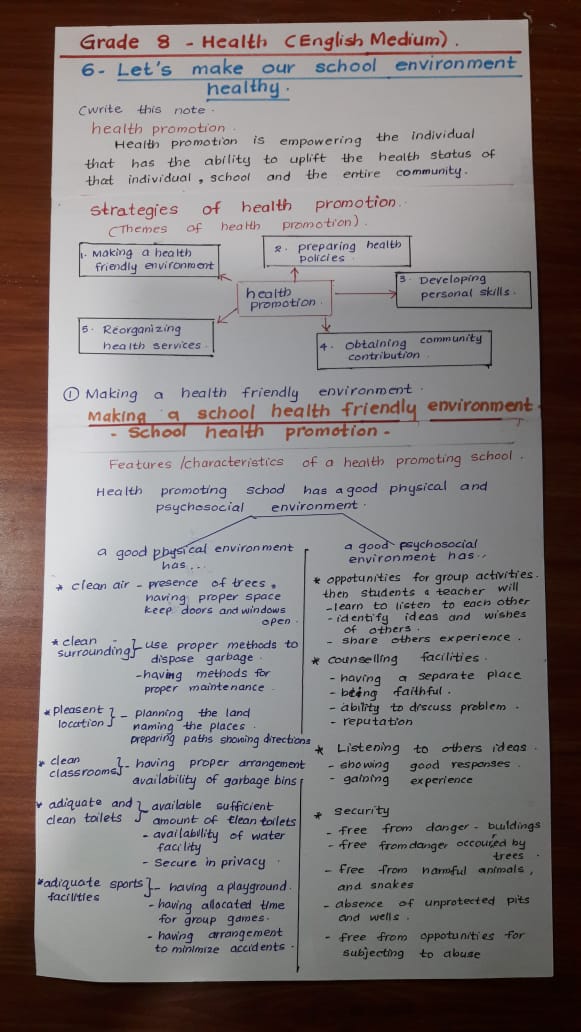 Grade 8 - Health (English Medium).
6- Let's make our school environment
healthy.
(write this note.
health promotion.
Health promotion is empowering the individual
that has the ability to uplift the health status of
that individual, school and the entire community.
Strategies of health promotion.
(Themes of health promotion).
1. Making a health
friendly environment
2. preparing health
policies.
3. Developing
personal skills.
health
promotion.
5. Reorganizing
health services.
4. Obtaining community
contribution.
① Making a health friendly environment.
Making a school health friendly environment
- School health promotion -
Features /characteristics of a health promoting school.
Health promoting school has a good physical and
psychosocial environment.
a good physical environment
has...
* clean air - presence of trees.
having proper space
keep doors and windows
open.
* clean
surrounding } - use proper methods to
dispose garbage.
- having methods for
proper maintenance.
* pleasent
location } - planning the land
naming the places.
preparing paths showing directions
* clean
classrooms } - having proper arrangement
availability of garbage bins
* adiquate and
clean toilets } - available sufficient
amount of clean toilets
- availability of water
facility
- Secure in privacy
* adiquate sports
facilities } - having a playground.
- having allocated time
for group games.
- having arrangement
to minimize accidents.
a good psychosocial
environment has...
* oppotunities for group activities.
then students & teacher will
- learn to listen to each other
- identify ideas and wishes
of others.
- share others experience.
* counselling facilities.
- having a separate place
- being faithful.
- ability to discuss problem.
- reputation
* Listening to others ideas.
- showing good responses.
- gaining experience
* security
- free from danger - buildings
- free from danger occoured by
trees.
- free from harmful animals,
and snakes
- absence of unprotected pits
and wells.
- free from oppotunities for
subjecting to abuse